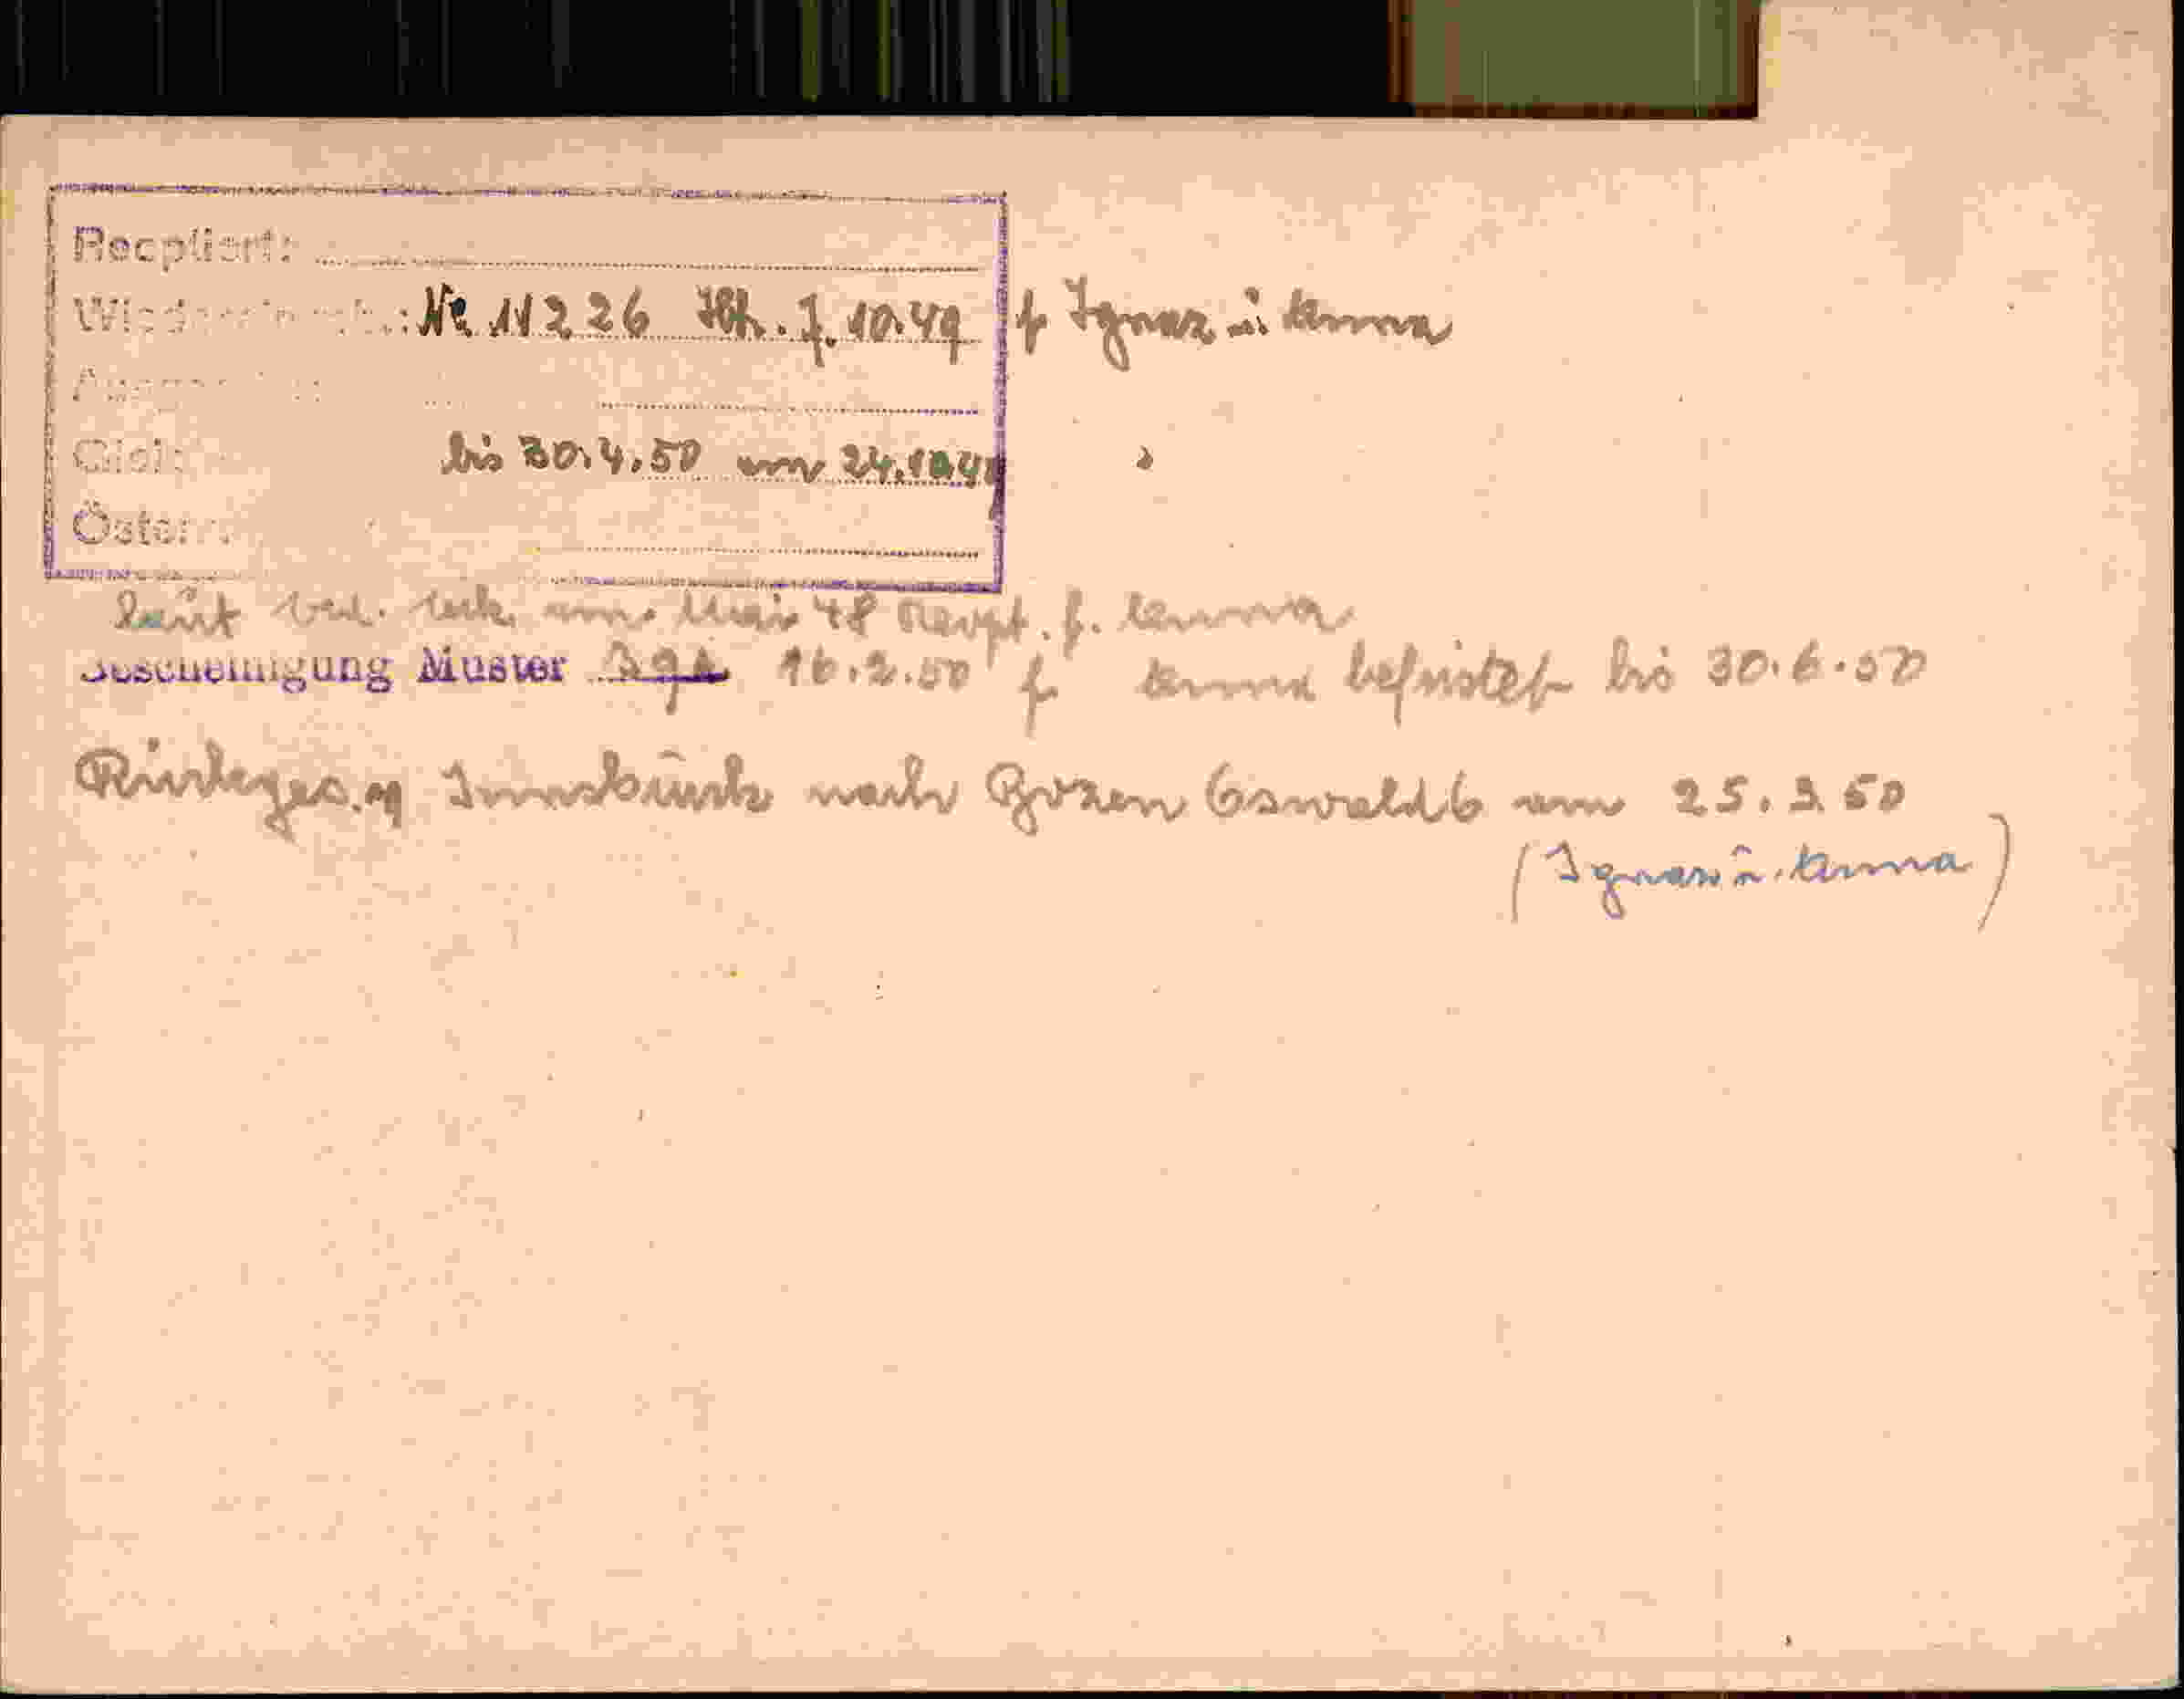 Reoptiert:
Nr. 11226 7.10.49 f Ignaz ü. Anna
bis 30.4.50 am 24.10.49
Österr.
laut am Mai 48 Reopt. f. Anna
Bescheinigung Muster 16.2.50 f Anna befristet bis 30.6.50
Innsbrück nach Bozen Oswald 6 am 25.3.50
(Ignaz ü. Anna)